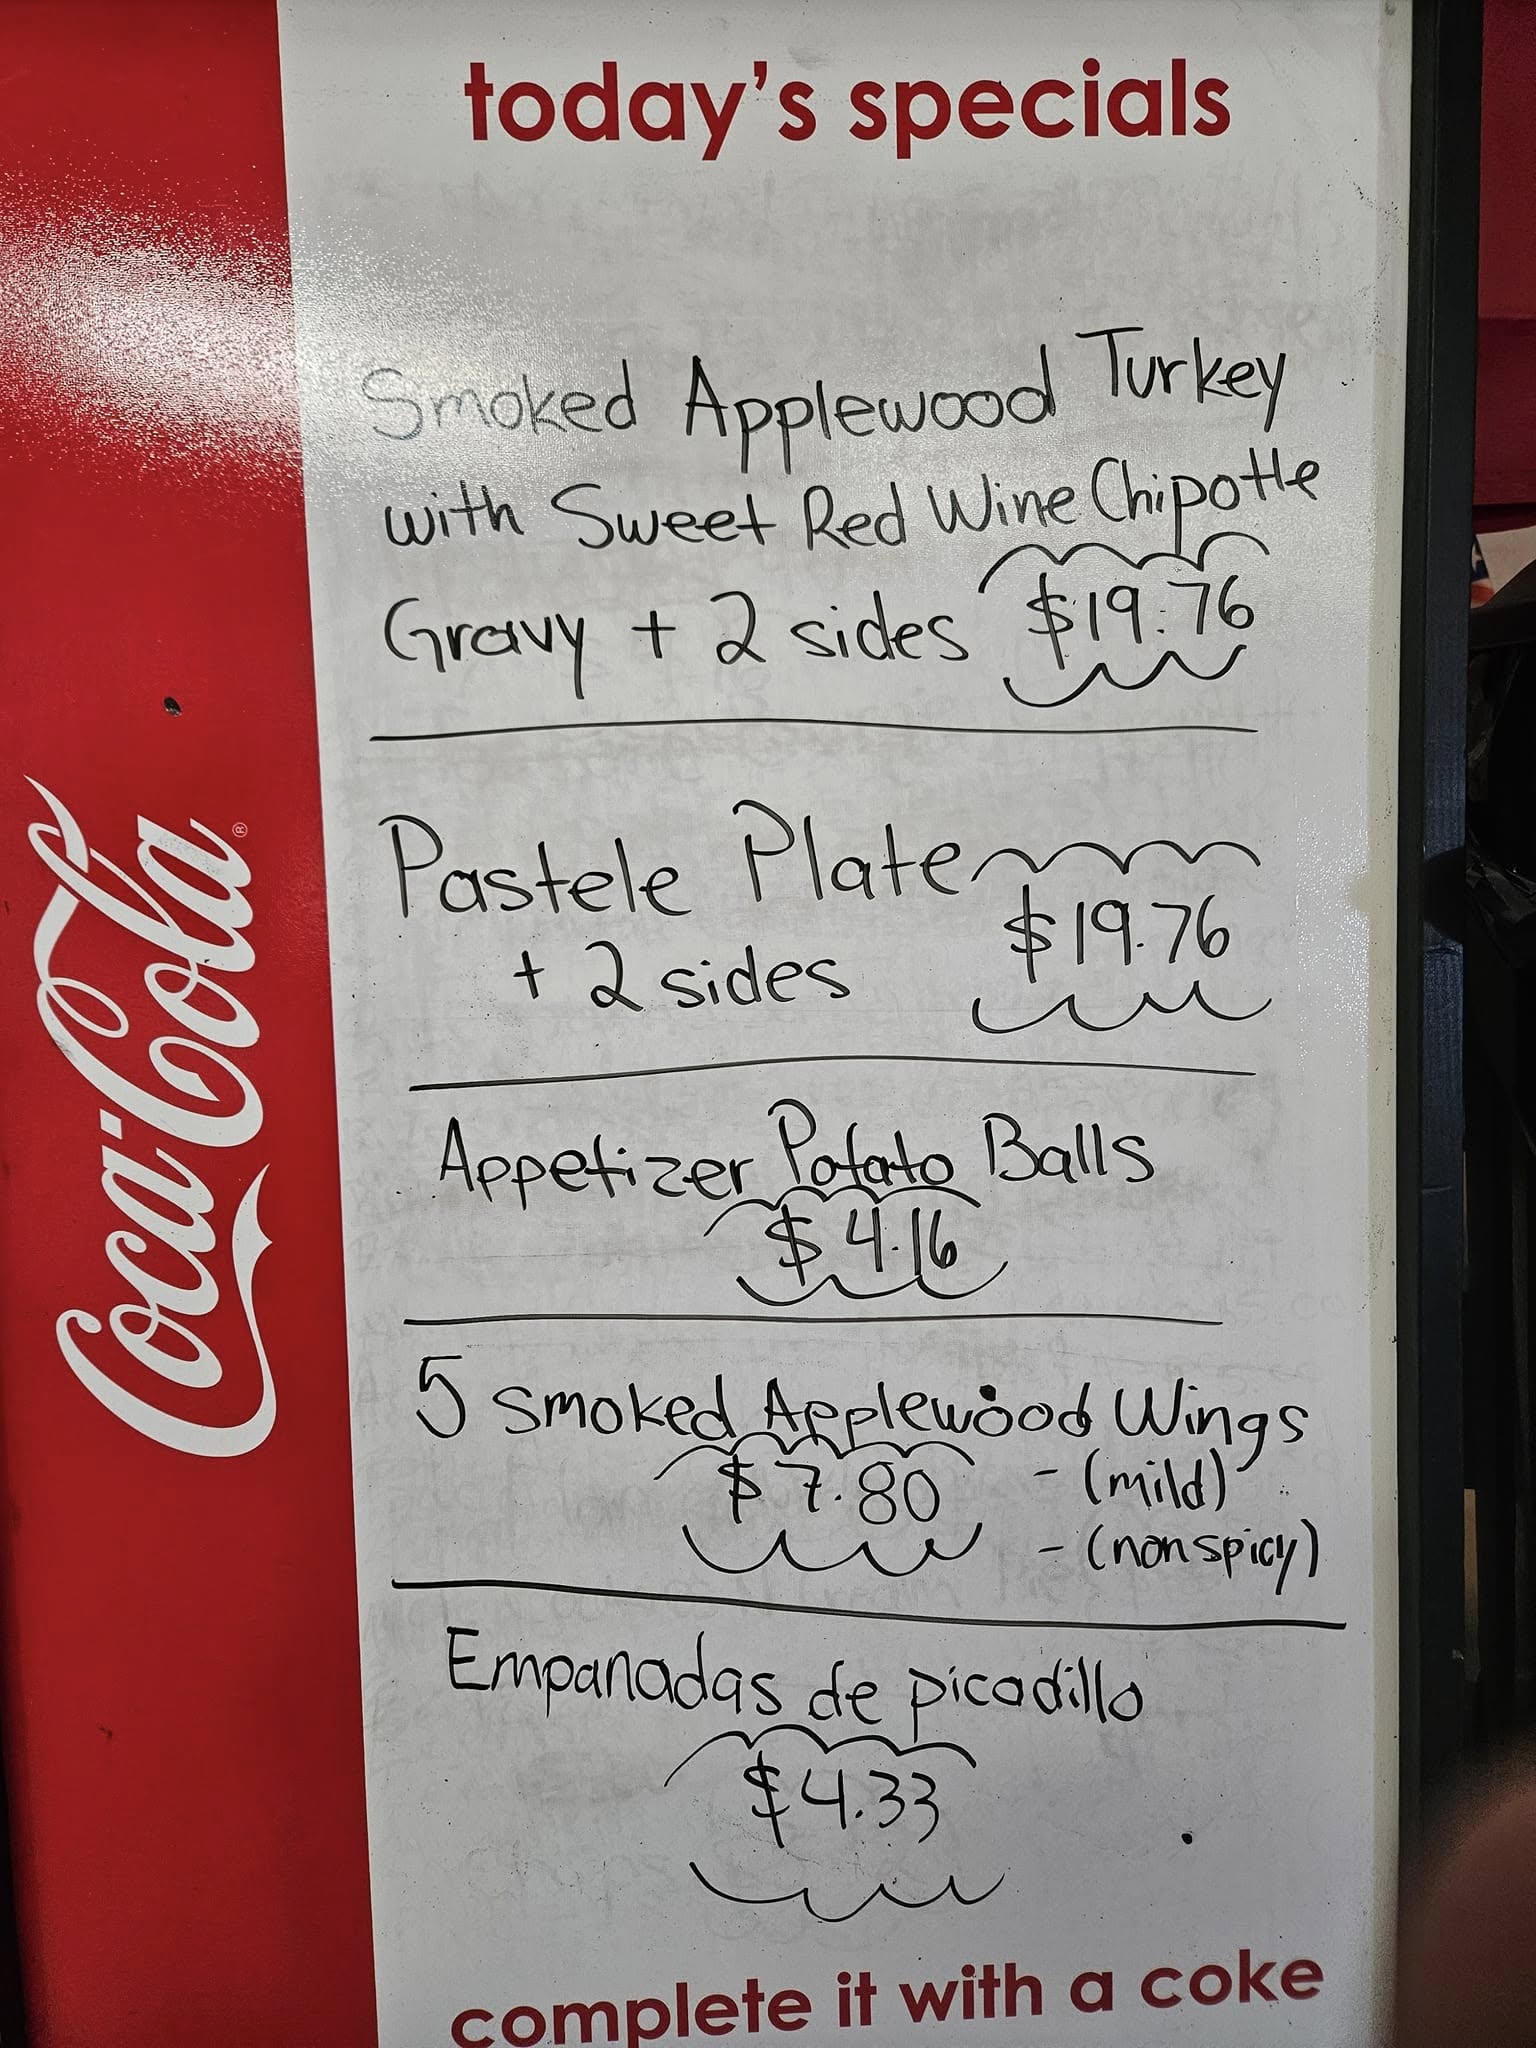 today's specials
Smoked Applewood Turkey
with Sweet Red Wine Chipotle
Gravy + 2 sides $19.76
Pastele Plate
+ 2 sides $19.76
Appetizer Potato Balls
$4.16
5 Smoked Applewood Wings
$7.80 - (mild)
- (non spicy)
Empanadas de picadillo
$4.33
complete it with a coke
Coca-Cola®